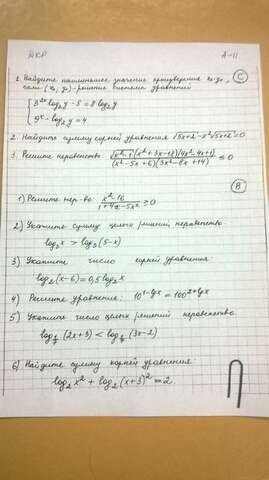 ДКР А-11
С
1. Найдите наименьшее значение произведения x₀·y₀,
если (x₀; y₀) - решение системы уравнений
{ 3²ˣ log₂ y - 5 = 8 log₂ y
9ˣ - log₂ y = 4
2. Найдите сумму корней уравнения
3. Решите неравенство: ≤ 0
В
1) Решите нер-во: (x² - 16)/(1 + 4x - 5x²) ≥ 0
2) Укажите сумму целых решений неравенства
log₃ x > log₃ (5 - x)
3) Укажите число корней уравнения:
log₂ (x - 6) = 0,5 log₂ x
4) Решите уравнение:
5) Укажите число целых решений неравенства
(2x + 3) < (3x - 2)
6) Найдите сумму корней уравнения:
log₂ x² + log₂ (x + 3)² = 2